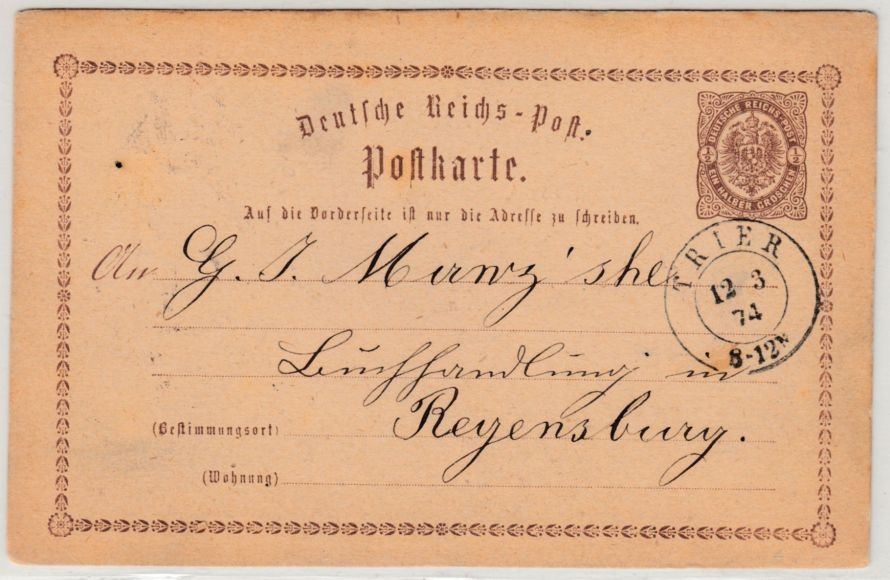 Deutsche Reichs-Post.
Postkarte.
DEUTSCHE REICHS-POST
1/2 1/2
EIN HALBER GROSCHEN
Auf die Vorderseite ist nur die Adresse zu schreiben.
An G. J. Manz'sche
TRIER
12 3
74
8-12N
Buchhandlung in
(Bestimmungsort) Regensburg.
(Wohnung)